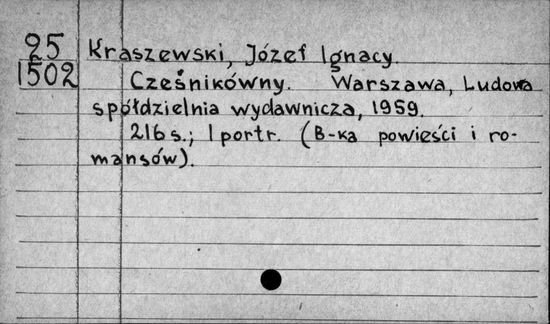 25 Kraszewski, Józef Ignacy.
1502 Cześnikówny. Warszawa, Ludowa
spółdzielnia wydawnicza, 1959.
216 s.; 1 portr. (B-ka powieści i ro-
mansów).